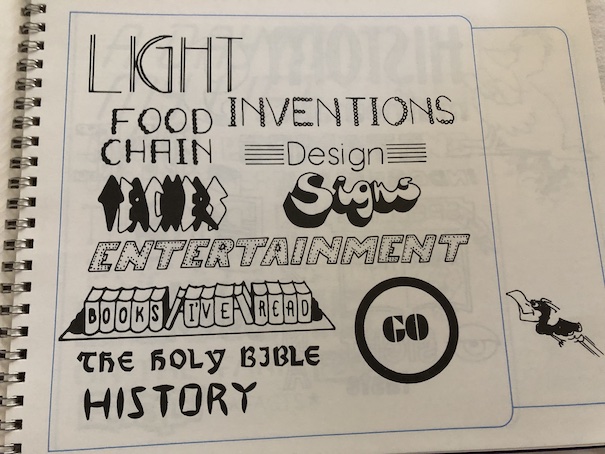 LIGHT
FOOD
CHAIN
INVENTIONS
Design
Signs
ENTERTAINMENT
BOOKS I'VE READ
GO
THE HOLY BIBLE
HISTORY